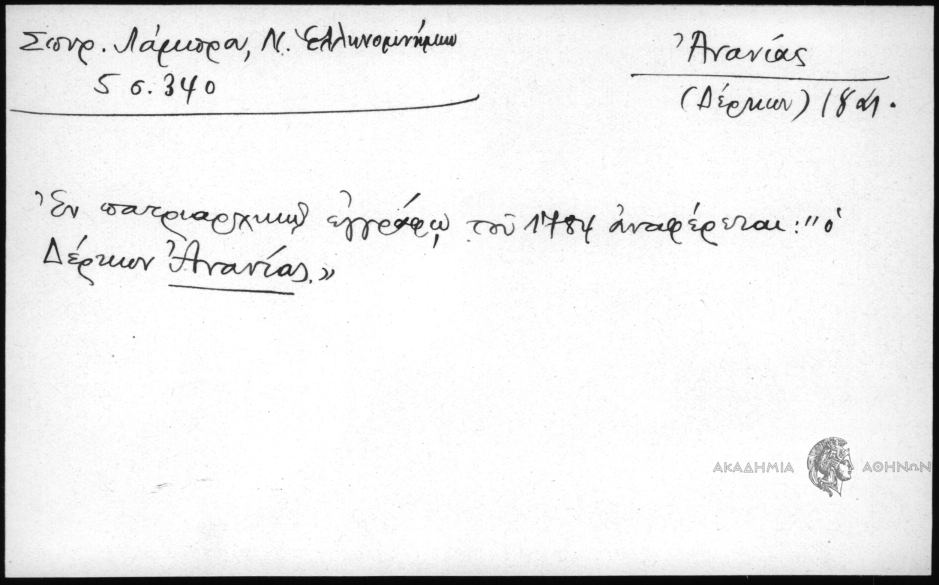 Σπυρ. Λάμπρου, Ν. Ἑλληνομνήμων
5 σ. 340
Ἀνανίας
(Δέρκων)
Ἐν πατριαρχικῷ ἐγγράφῳ τοῦ 1784 ἀναφέρεται: "ὁ
Δέρκων Ἀνανίας.»
ΑΚΑΔΗΜΙΑ ΑΘΗΝΩΝ